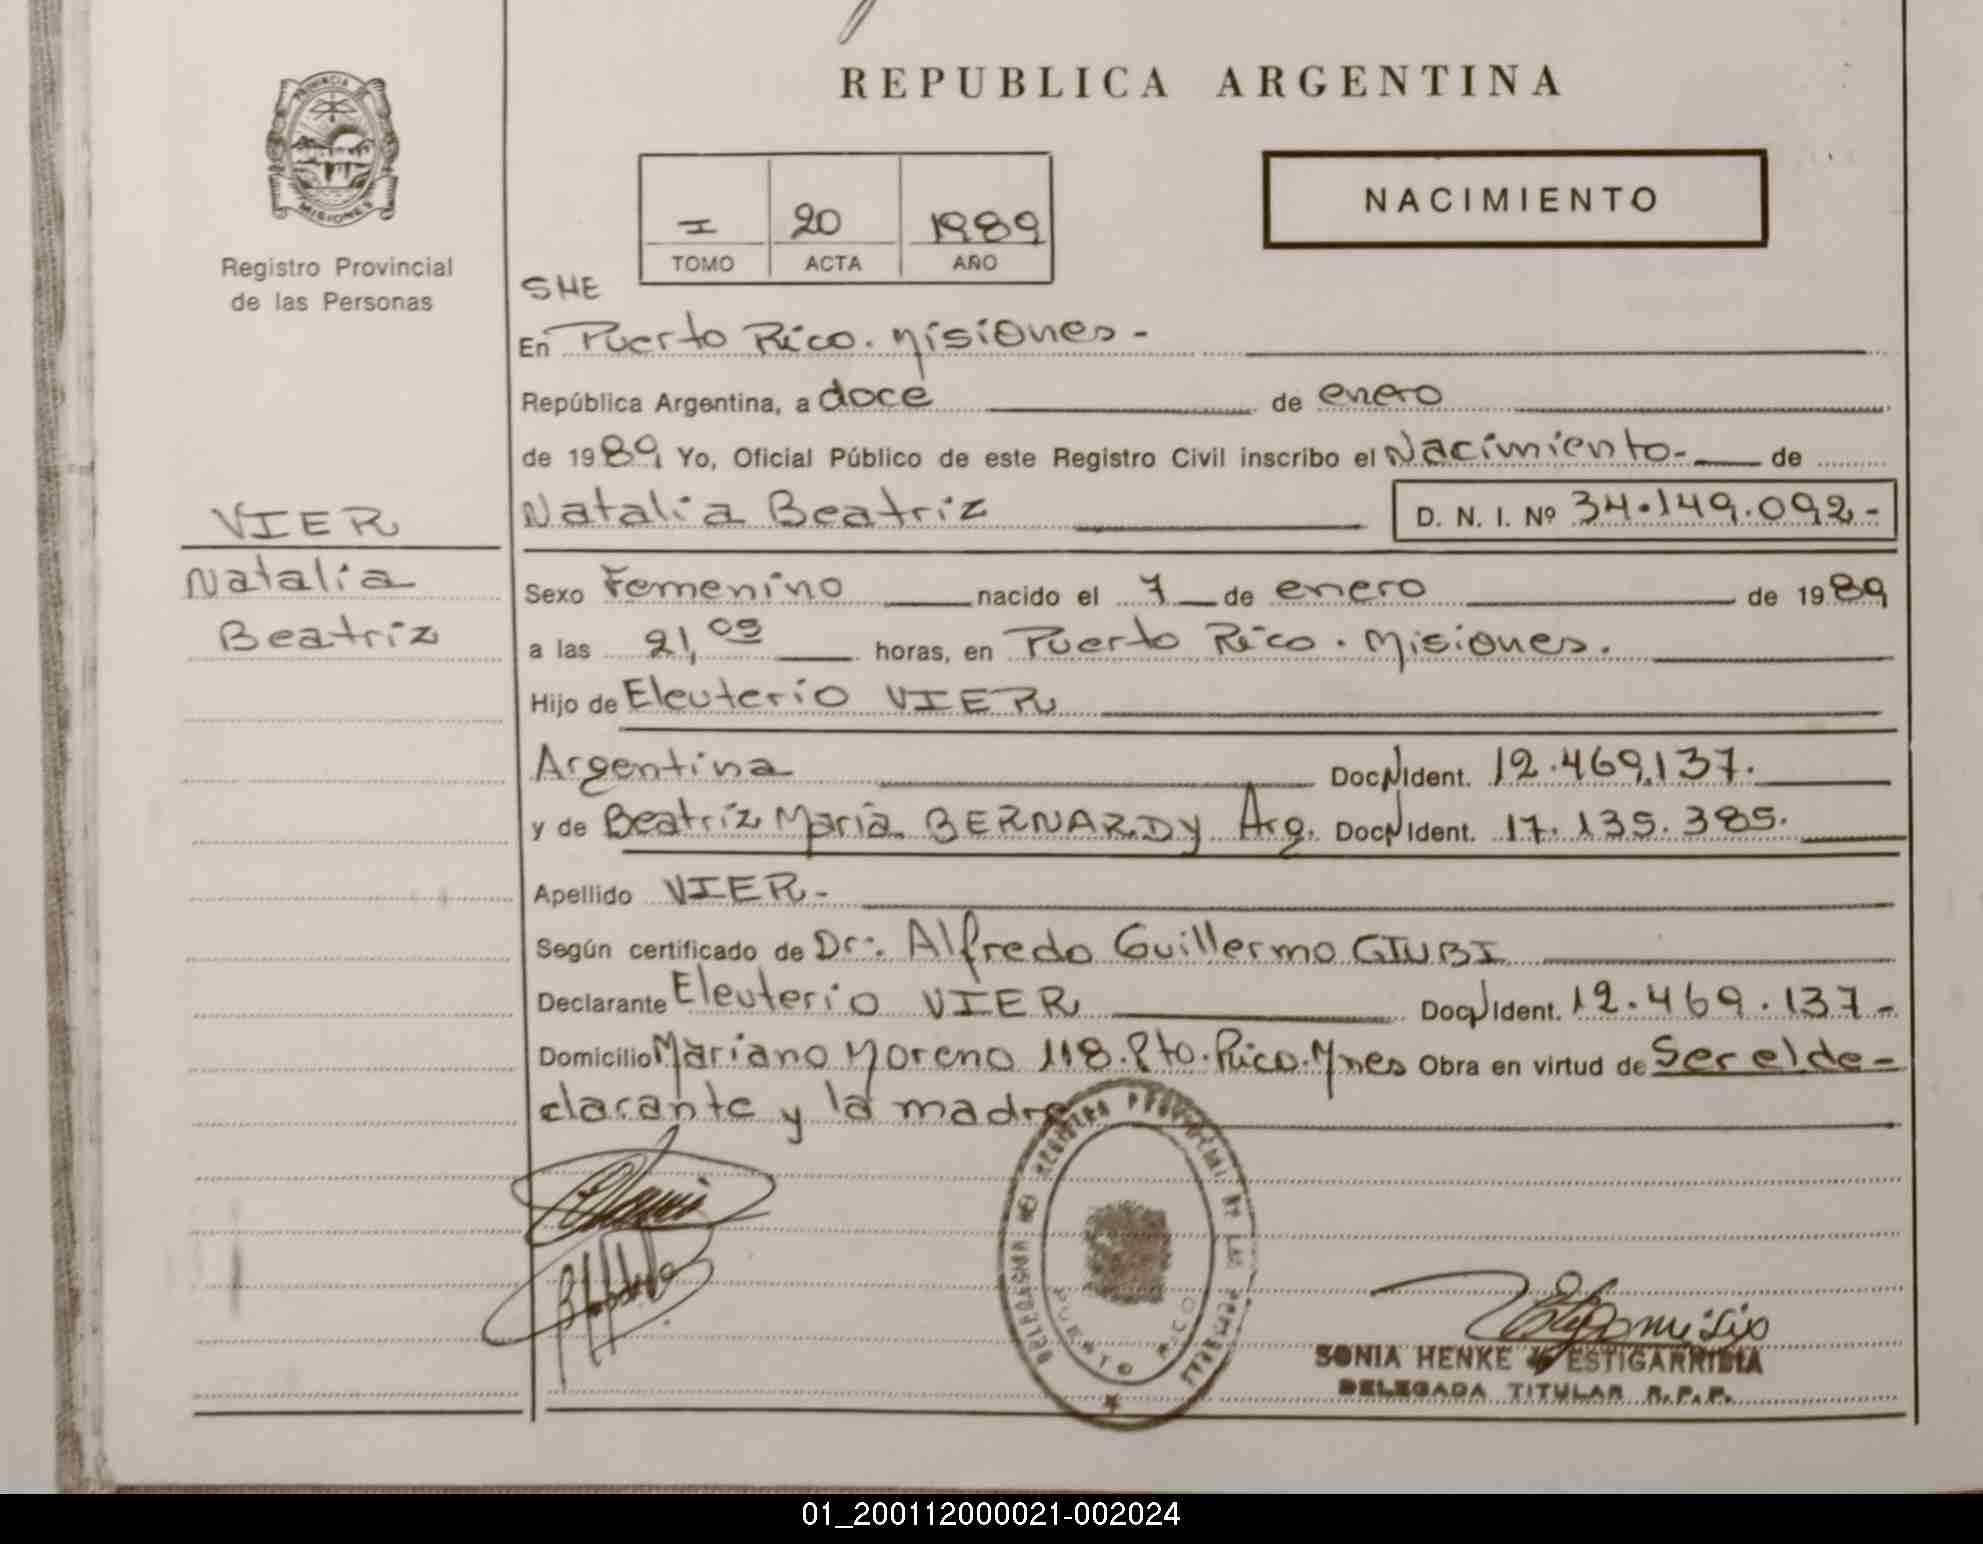 REPUBLICA ARGENTINA
PROVINCIA DE
MISIONES
Registro Provincial
de las Personas
NACIMIENTO
I 20 1989
TOMO ACTA AÑO
SHE
En Puerto Rico. Misiones -
República Argentina, a doce de enero
de 1989 Yo, Oficial Público de este Registro Civil inscribo el Nacimiento- de
VIER
Natalia
Beatriz
Natalia Beatriz D. N. I. Nº 34.149.092-
Sexo Femenino nacido el 7 de enero de 1989
a las 21,09 horas, en Puerto Rico. Misiones.
Hijo de Eleuterio VIER
Argentina Doc. N Ident. 12.469.137.
y de Beatriz María BERNARDY Arg. Doc. N Ident. 17.135.385.
Apellido VIER-
Según certificado de Dr: Alfredo Guillermo GIUBI
Declarante Eleuterio VIER Doc. N Ident. 12.469.137-
Domicilio Mariano Moreno 118. Pto. Rico. Mnes Obra en virtud de Ser el de-
clarante y la madre
DELEGACION DEL REGISTRO PROVINCIAL DE LAS PERSONAS
PUERTO RICO
SONIA HENKE de ESTIGARRIBIA
DELEGADA TITULAR R.P.P.
01_200112000021-002024